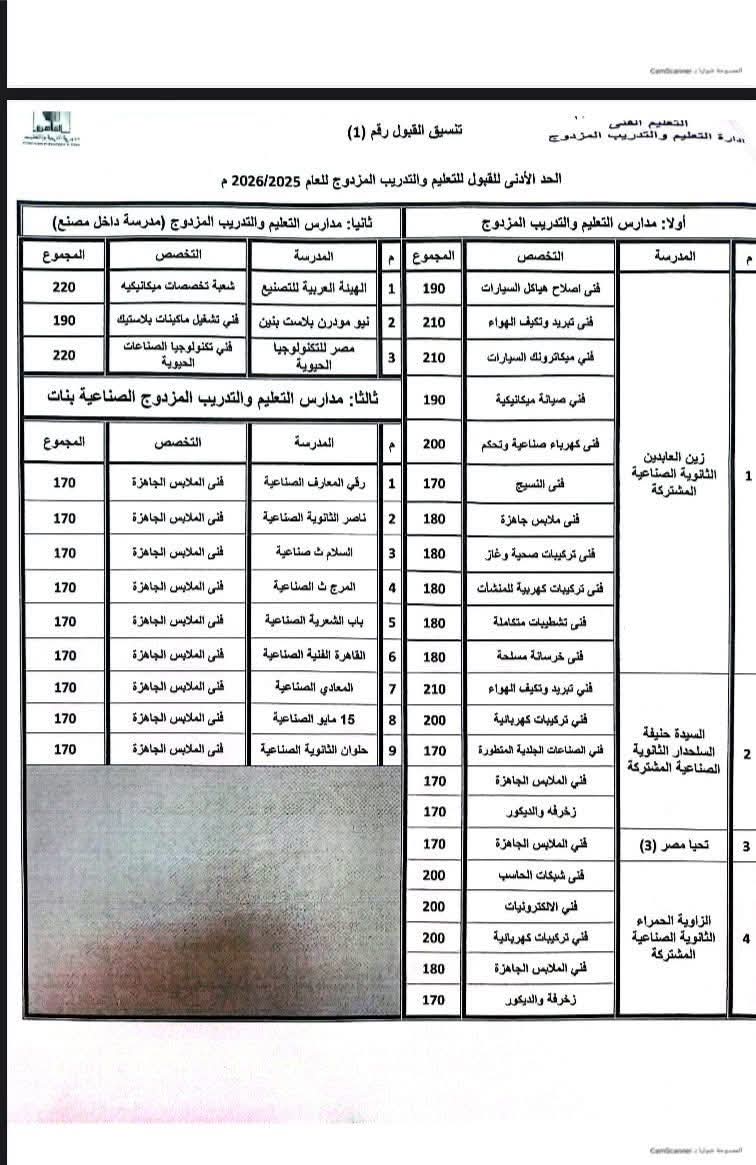 الممسوحة ضوئيا بـ CamScanner
التعليم الفنى
ادارة التعليم والتدريب المزدوج
تنسيق القبول رقم (1)
الحد الأدنى للقبول للتعليم والتدريب المزدوج للعام 2026/2025 م
أولا: مدارس التعليم والتدريب المزدوج
م المدرسة التخصص المجموع
1 زين العابدين الثانوية الصناعية المشتركة
فنى اصلاح هياكل السيارات 190
فنى تبريد وتكيف الهواء 210
فني ميكاترونك السيارات 210
فني صيانة ميكانيكية 190
فنى كهرباء صناعية وتحكم 200
فنى النسيج 170
فنى ملابس جاهزة 180
فنى تركيبات صحية وغاز 180
فنى تركيبات كهربية للمنشآت 180
فنى تشطيبات متكاملة 180
فنى خرسانة مسلحة 180
2 السيدة حنيفة السلحدار الثانوية الصناعية المشتركة
فني تبريد وتكيف الهواء 210
فني تركيبات كهربائية 200
فني الصناعات الجلدية المتطورة 170
فني الملابس الجاهزة 170
زخرفه والديكور 170
3 تحيا مصر (3) فني الملابس الجاهزة 170
4 الزاوية الحمراء الثانوية الصناعية المشتركة
فنى شبكات الحاسب 200
فني الالكترونيات 200
فني تركيبات كهربائية 200
فني الملابس الجاهزة 180
زخرفة والديكور 170
ثانيا: مدارس التعليم والتدريب المزدوج (مدرسة داخل مصنع)
م المدرسة التخصص المجموع
1 الهيئة العربية للتصنيع شعبة تخصصات ميكانيكيه 220
2 نيو مودرن بلاست بنين فني تشغيل ماكينات بلاستيك 190
3 مصر للتكنولوجيا الحيوية فني تكنولوجيا الصناعات الحيوية 220
ثالثا: مدارس التعليم والتدريب المزدوج الصناعية بنات
م المدرسة التخصص المجموع
1 رقي المعارف الصناعية فنى الملابس الجاهزة 170
2 ناصر الثانوية الصناعية فنى الملابس الجاهزة 170
3 السلام ث صناعية فنى الملابس الجاهزة 170
4 المرج ث الصناعية فنى الملابس الجاهزة 170
5 باب الشعرية الصناعية فنى الملابس الجاهزة 170
6 القاهرة الفنية الصناعية فنى الملابس الجاهزة 170
7 المعادي الصناعية فنى الملابس الجاهزة 170
8 15 مايو الصناعية فنى الملابس الجاهزة 170
9 حلوان الثانوية الصناعية فنى الملابس الجاهزة 170
الممسوحة ضوئيا بـ CamScanner